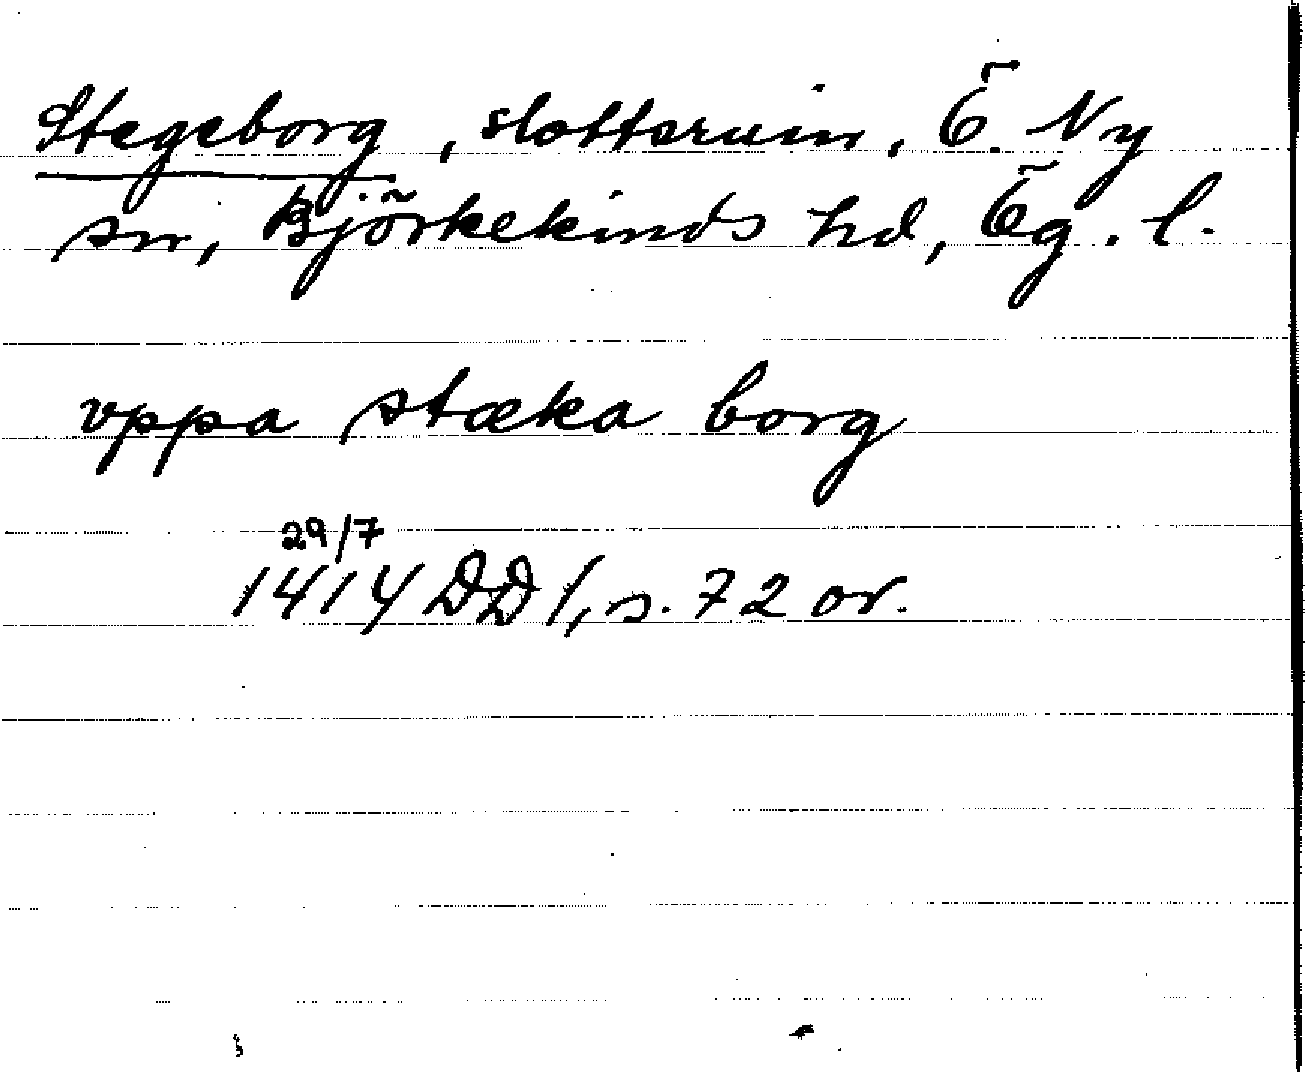 Stegeborg, slottsruin, Ö. Ny
sn, Björkekinds hd, Ög. l.
vppa stæka borg
29/7
1414 DD 1, s. 72 or.